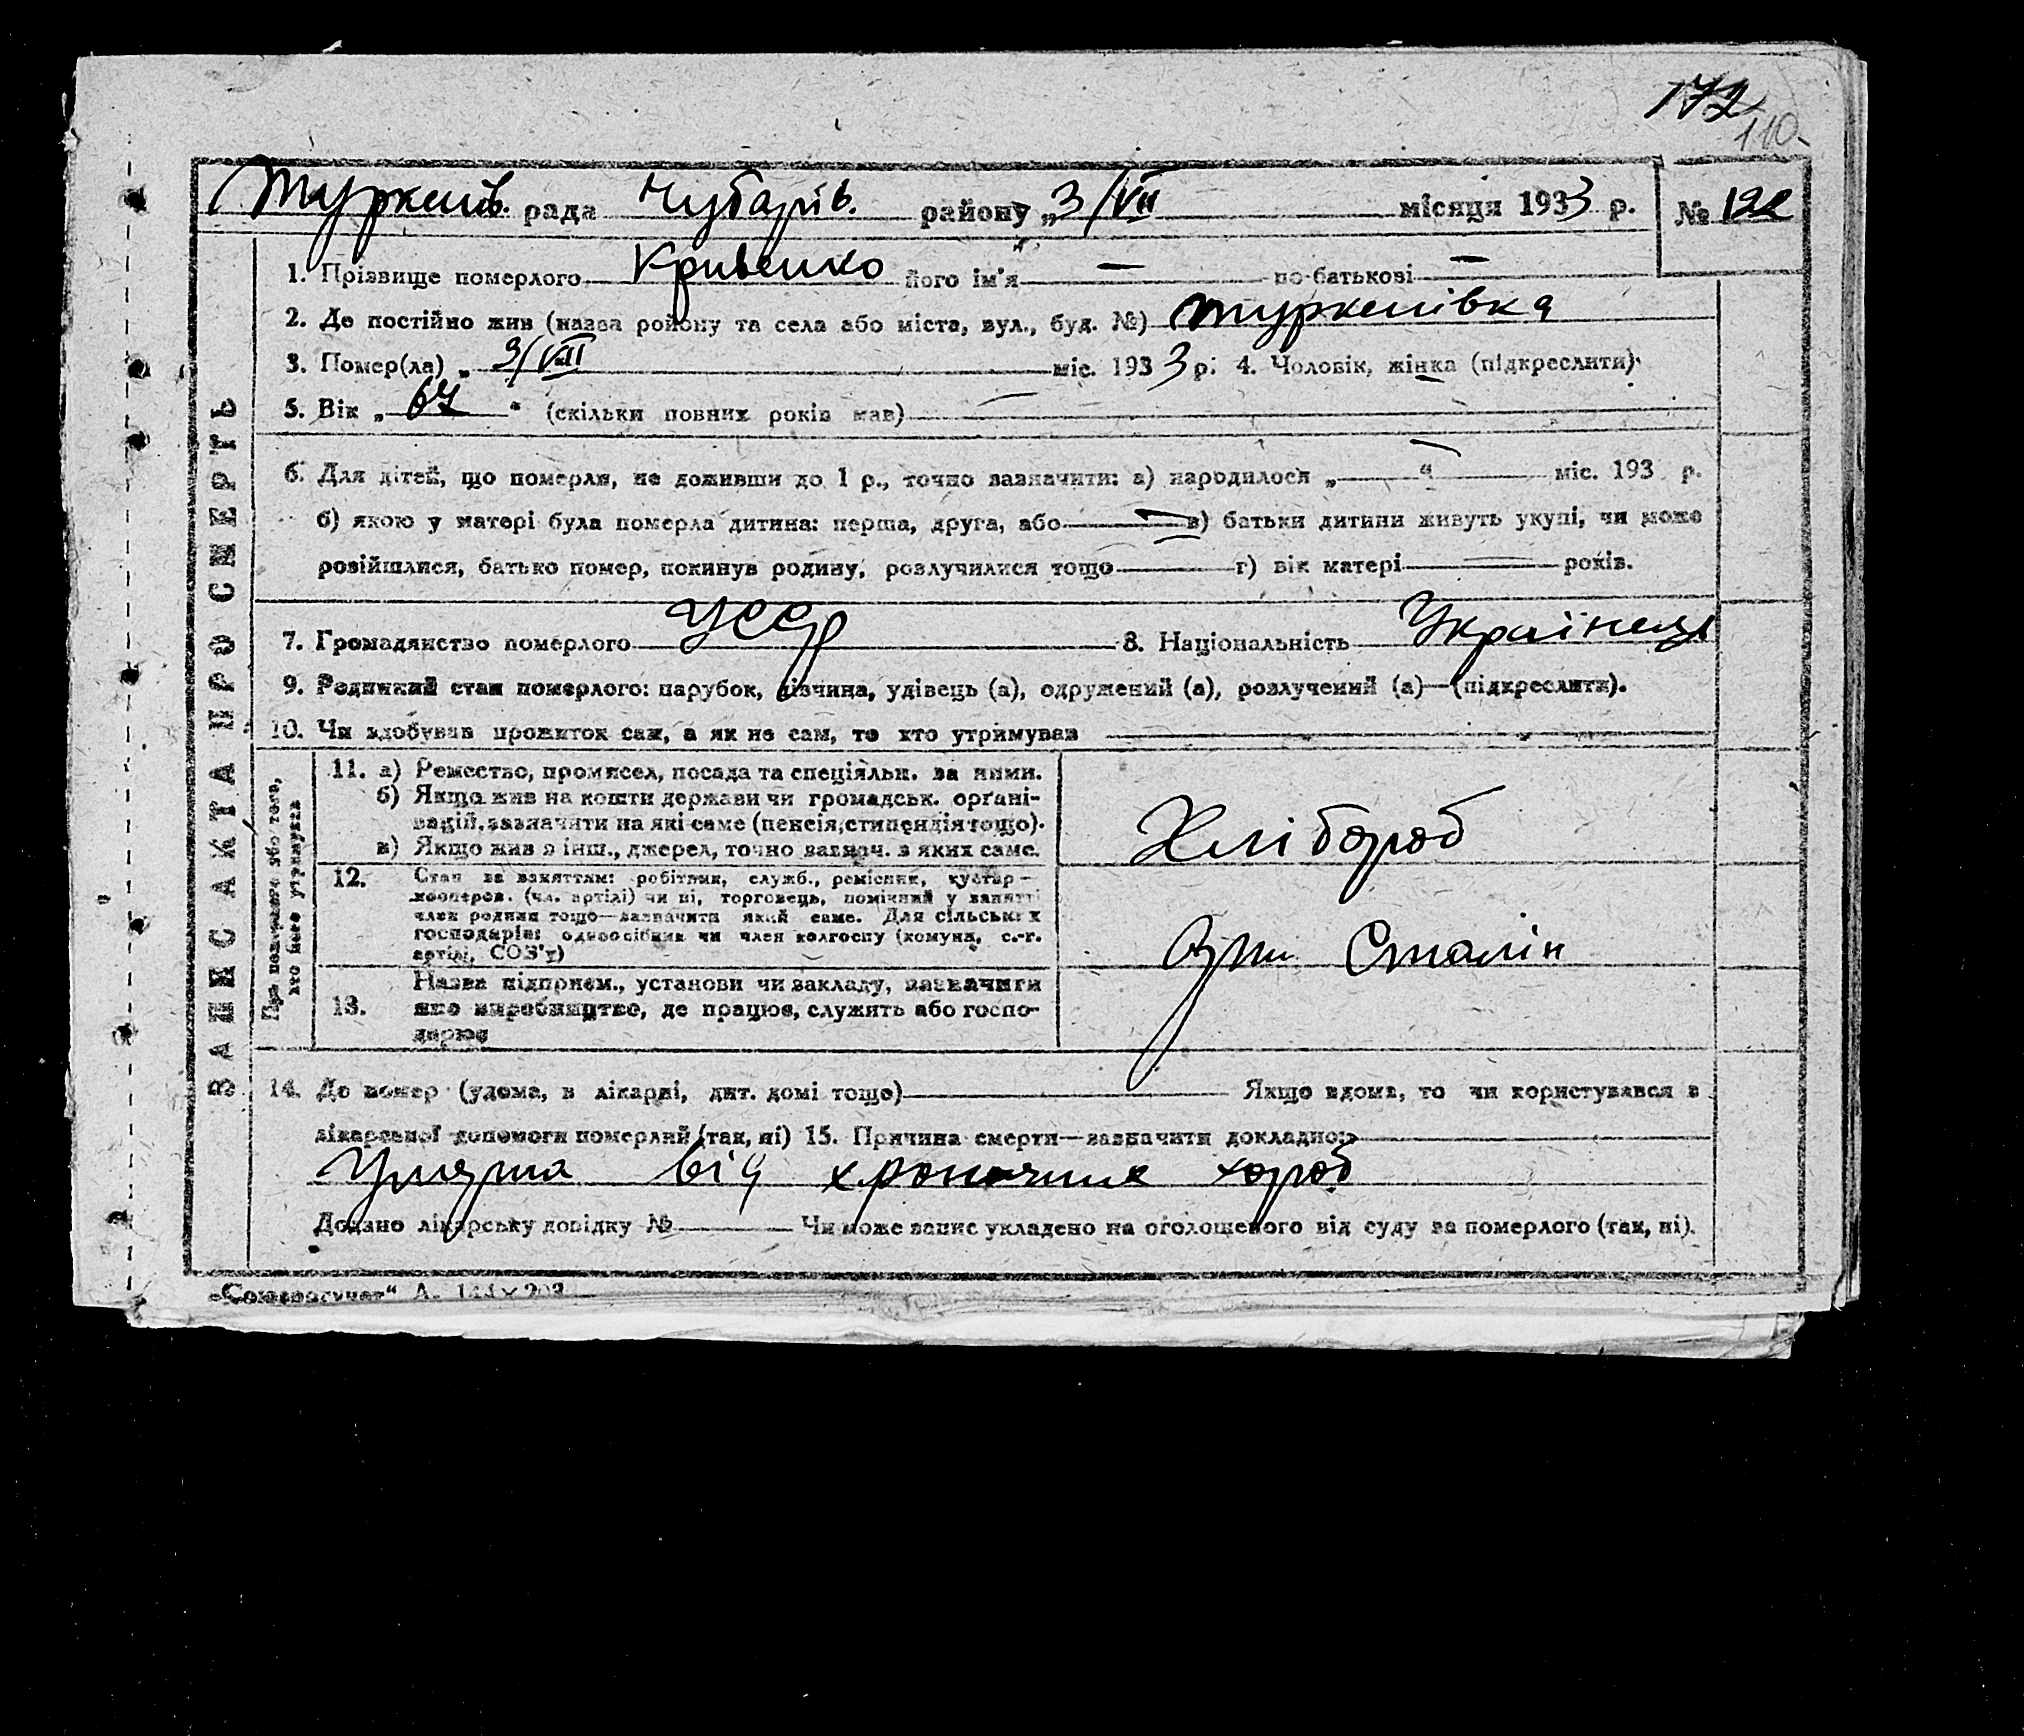 172
110
Туркенів. рада Чубарів. району „3/VII місяця 1933 р. № 122
1. Прізвище померлого Кривенко його ім'я — по-батькові —
2. Де постійно жив (назва району та села або міста, вул., буд. №) Туркенівка
3. Помер(ла) „ 3/VII міс. 1933 р. 4. Чоловік, жінка (підкреслити).
5. Вік „ 67 “ (скільки повних років мав) —
6. Для дітей, що померли, не доживши до 1 р., точно зазначити: а) народилося „ — “ міс. 193 р.
б) якою у матері була померла дитина: перша, друга, або — в) батьки дитини живуть укупі, чи може
розійшлися, батько помер, покинув родину, розлучилися тощо — г) вік матері — років.
7. Громадянство померлого УССР 8. Національність Українець
9. Родинний стан померлого: парубок, дівчина, удівець (а), одружений (а), розлучений (а)—(підкреслити).
10. Чи здобував прожиток сам, а як не сам, то хто утримував
ЗАПИС АКТА ПРО СМЕРТЬ
Про померлого або того, хто його утримував
11. а) Ремество, промисел, посада та спеціяльн. за ними.
б) Якщо жив на кошти держави чи громадськ. орґані-
зацій, зазначити на які саме (пенсія, стипендія тощо).
в) Якщо жив з інш., джерел, точно зазнач. з яких саме.
Хлібороб
12. Стан за заняттям: робітник, служб., ремісник, кустар—
кооперов. (чл. артілі) чи ні, торговець, помічний у занятті
член родини тощо—зазначити який саме. Для сільських
господарів: одноосібник чи член колгоспу (комуна, с.-г.
артіль, СОЗ'у)
Арт. Сталін
13. Назва підприєм., установи чи закладу, зазначити
яке виробництво, де працює, служить або госпо-
дарює
14. Де помер (удома, в лікарні, дит. домі тощо) Якщо вдома, то чи користувався з
лікарської допомоги померлий (так, ні) 15. Причина смерти—зазначити докладно:
Умерла від хронични хороб
Додано лікарську довідку № Чи може запис укладено на оголошеного від суду за померлого (так, ні).